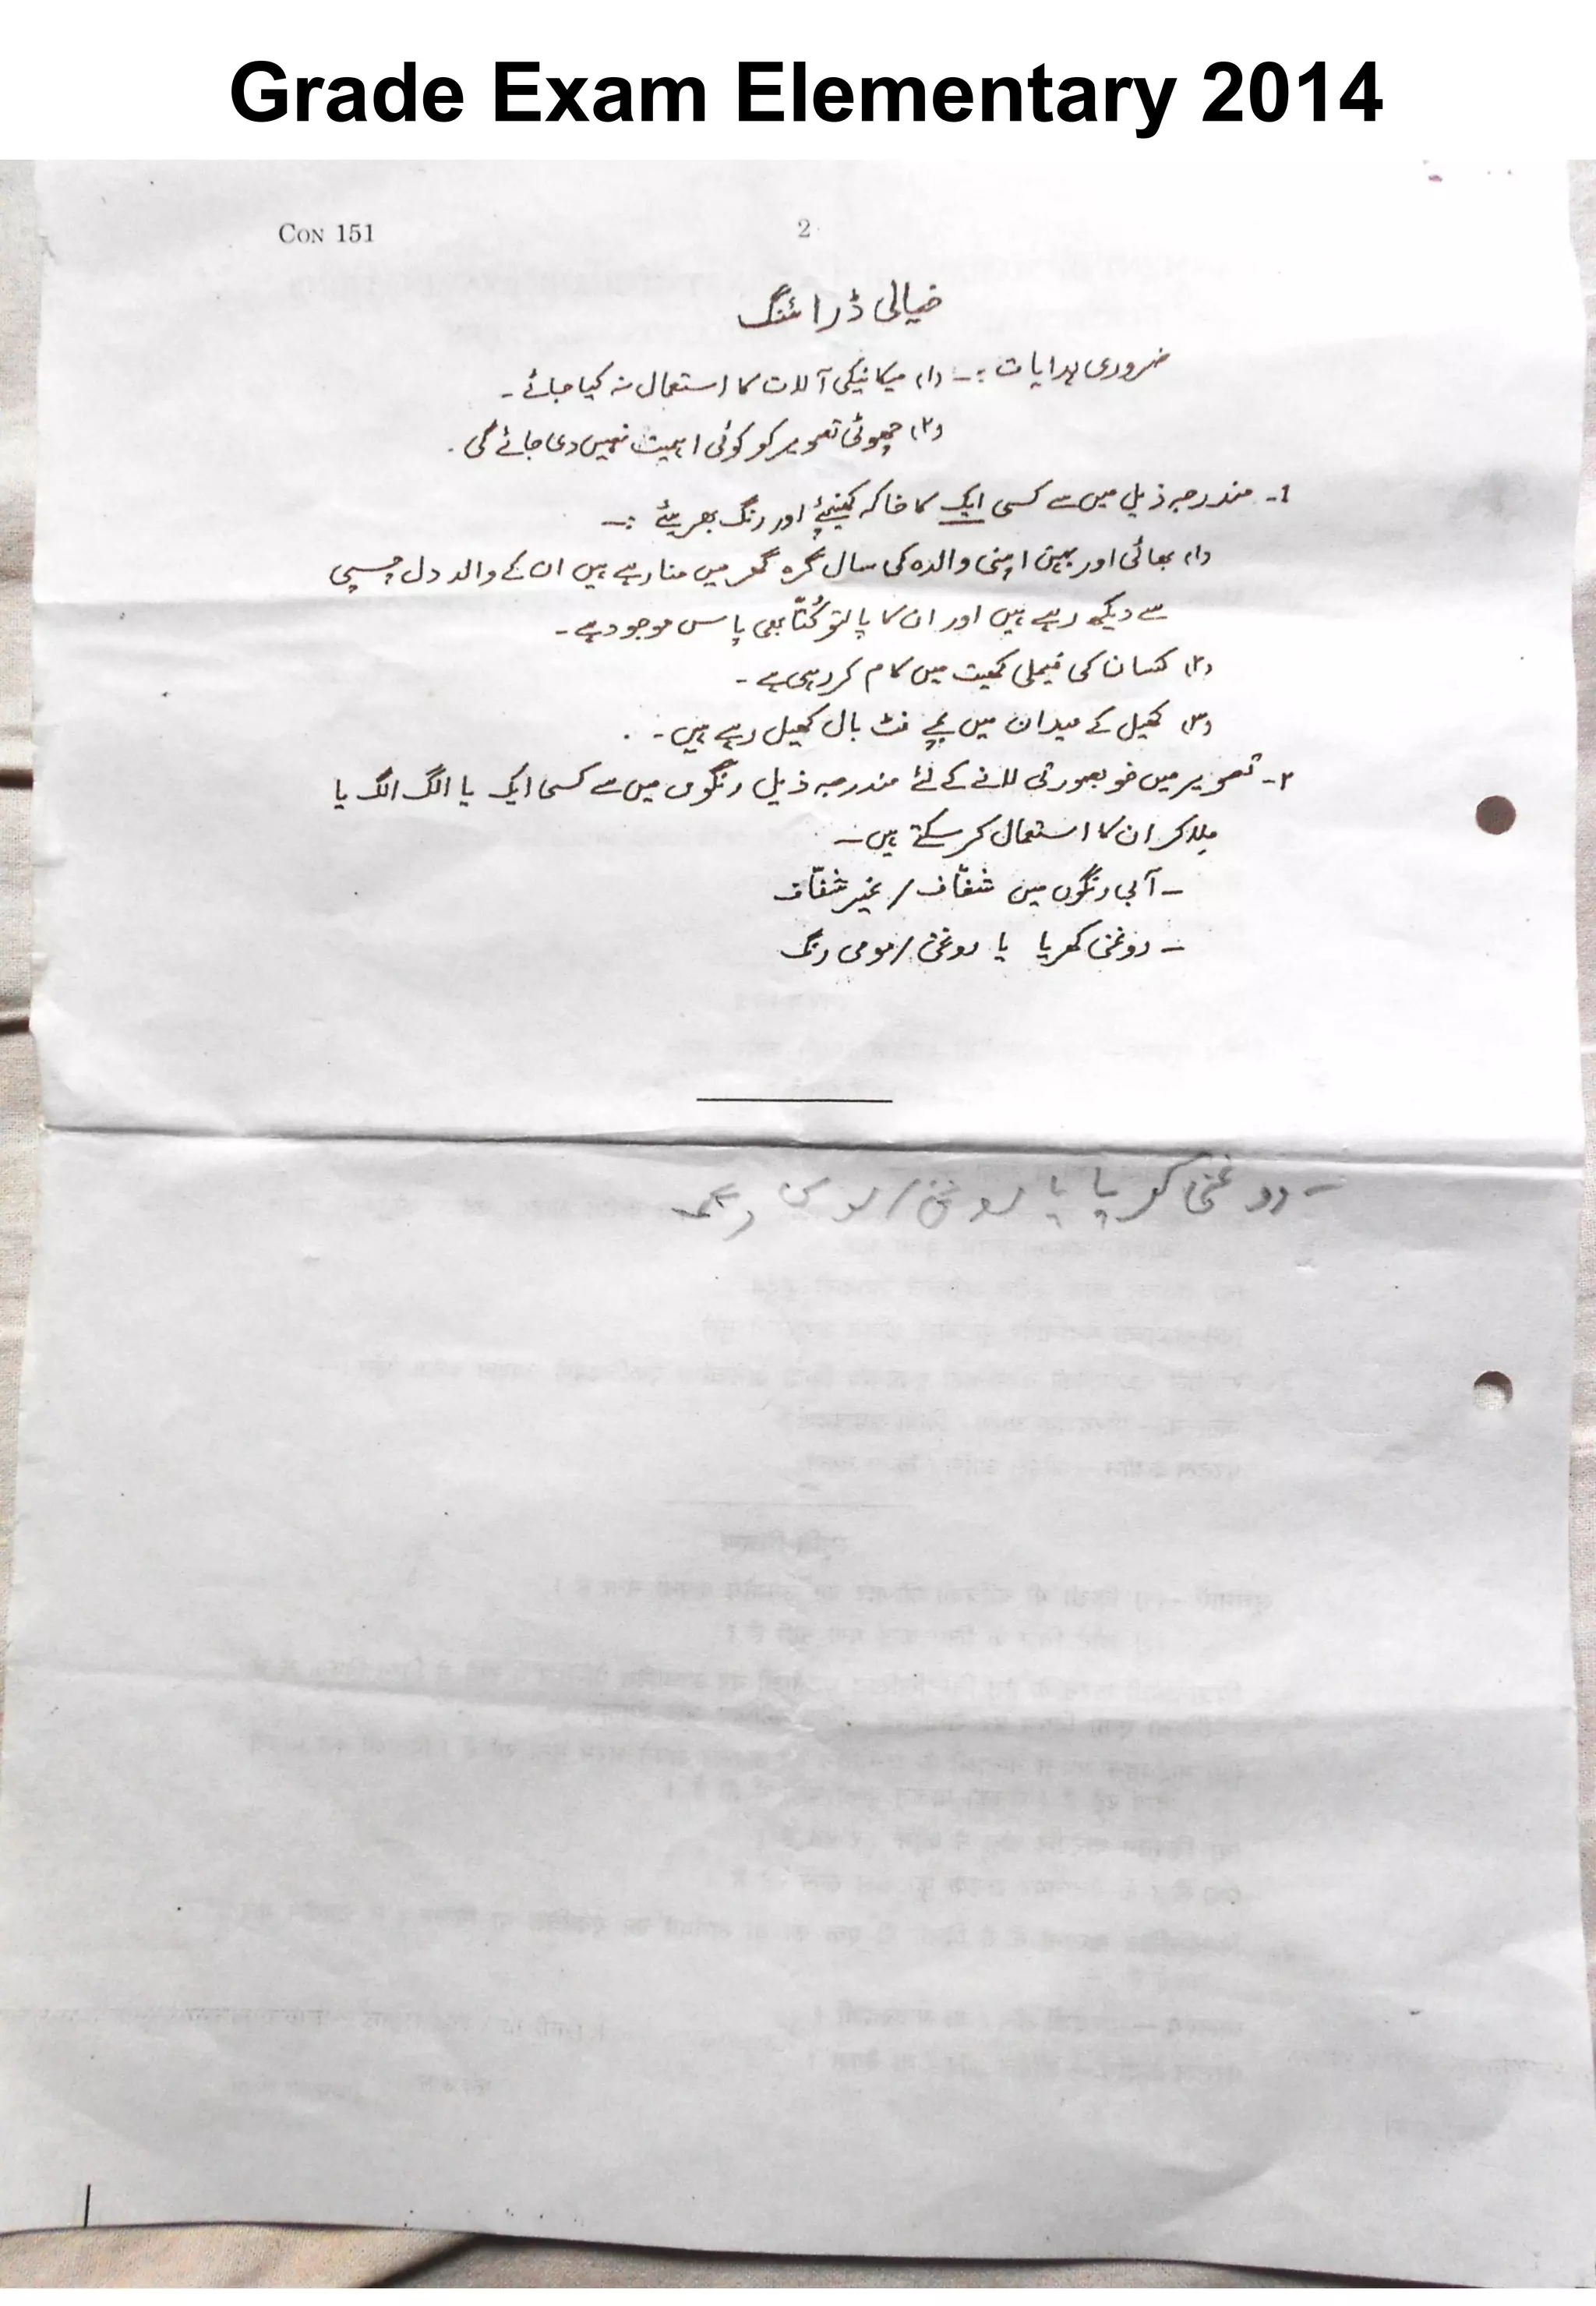 Grade Exam Elementary 2014
CON 151
2
خیالی ڈرائنگ
ضروری ہدایات :۔ (۱) میکانیکی آلات کا استعمال نہ کیا جائے۔
(۲) چھوٹی تصویر کو کوئی اہمیت نہیں دی جائے گی۔
1۔ مندرجہ ذیل میں سے کسی ایک کا خاکہ کھینچئے اور رنگ بھریئے :۔
(۱) بھائی اور بہن اپنی والدہ کی سال گرہ گھر میں منا رہے ہیں ان کے والد دل چسپی
سے دیکھ رہے ہیں اور ان کا پالتو کُتّا بھی پاس موجود ہے۔
(۲) کسان کی فیملی کھیت میں کام کر رہی ہے۔
(۳) کھیل کے میدان میں بچے فٹ بال کھیل رہے ہیں۔
۲۔ تصویر میں خوبصورتی لانے کے لئے مندرجہ ذیل رنگوں میں سے کسی ایک یا الگ الگ یا
ملا کر ان کا استعمال کر سکتے ہیں۔
۔ آبی رنگوں میں شفّاف / غیر شفّاف
۔ روغنی کھریا یا روغنی / مومی رنگ